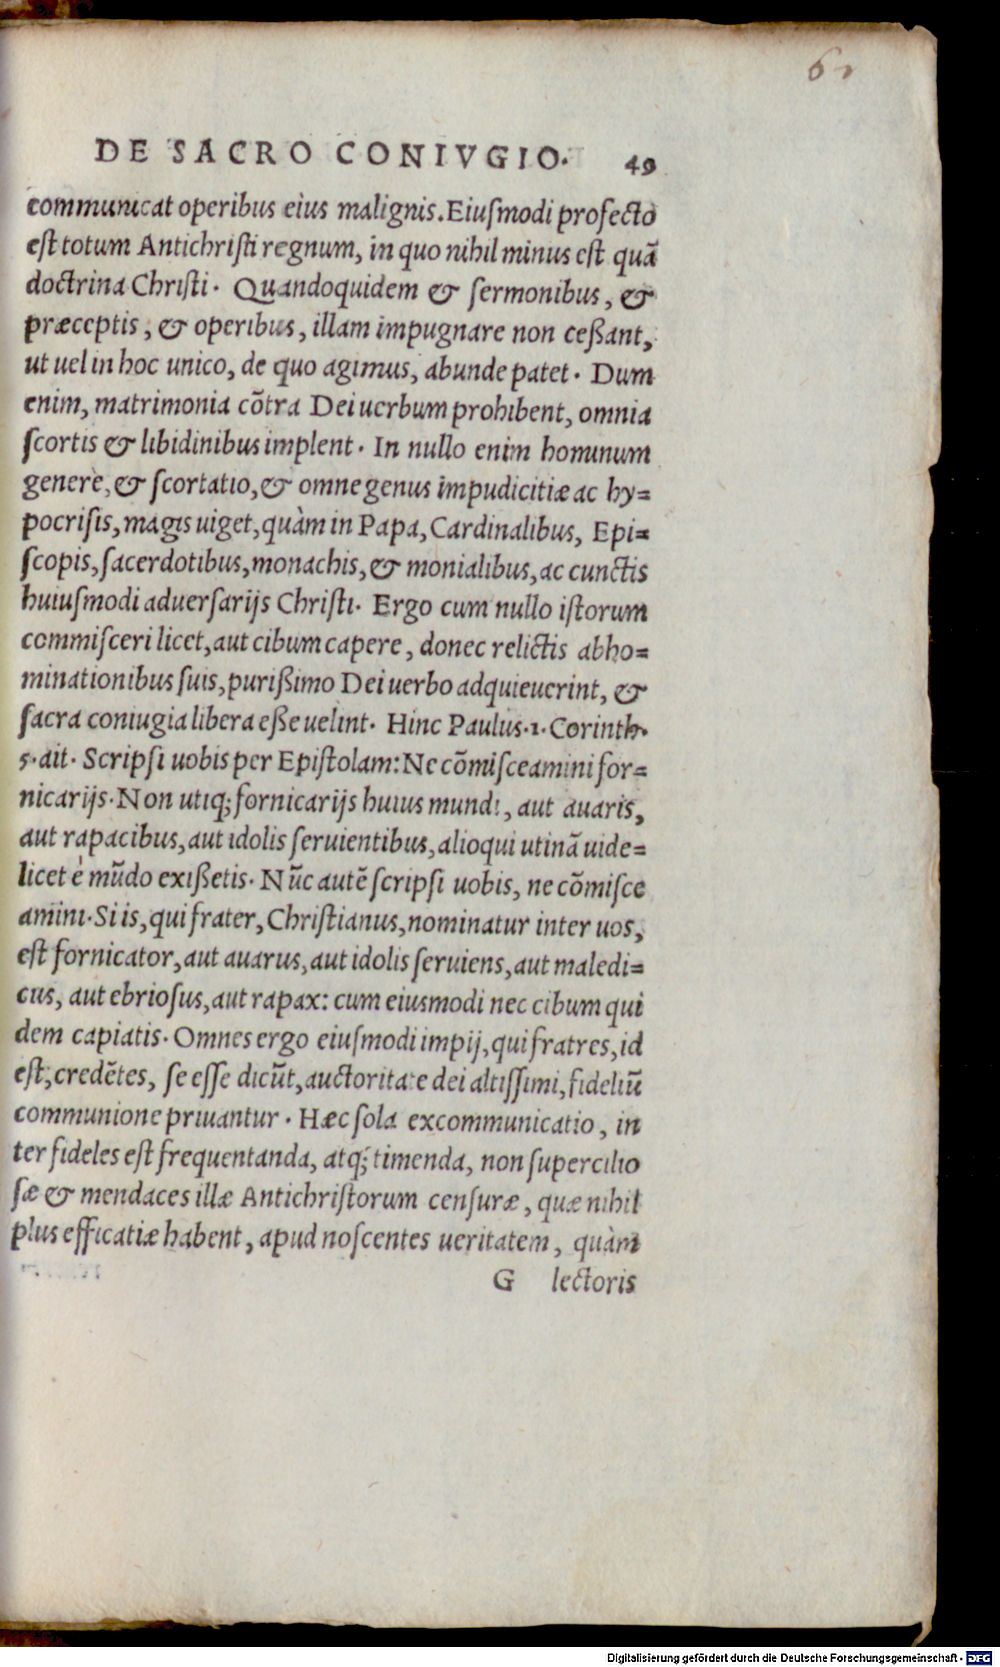 61
DE SACRO CONIVGIO. 49
communicat operibus eius malignis. Eiuſmodi profecto
eſt totum Antichriſti regnum, in quo nihil minus eſt quā
doctrina Chriſti. Quandoquidem & ſermonibus, &
præceptis, & operibus, illam impugnare non ceßant,
ut uel in hoc unico, de quo agimus, abunde patet. Dum
enim, matrimonia cōtra Dei uerbum prohibent, omnia
ſcortis & libidinibus implent. In nullo enim hominum
genere, & ſcortatio, & omne genus impudicitiæ ac hy=
pocriſis, magis uiget, quàm in Papa, Cardinalibus, Epi=
ſcopis, ſacerdotibus, monachis, & monialibus, ac cunctis
huiuſmodi aduerſarijs Chriſti. Ergo cum nullo iſtorum
commiſceri licet, aut cibum capere, donec relictis abho=
minationibus ſuis, purißimo Dei uerbo adquieuerint, &
ſacra coniugia libera eße uelint. Hinc Paulus.1. Corinth.
5. ait. Scripſi uobis per Epiſtolam: Ne cōmiſceamini for=
nicarijs. Non utiq; fornicarijs huius mundi, aut auaris,
aut rapacibus, aut idolis ſeruientibus, alioqui utinā uide=
licet è mūdo exißetis. Nūc autē ſcripſi uobis, ne cōmiſce
amini. Si is, qui frater, Chriſtianus, nominatur inter uos,
eſt fornicator, aut auarus, aut idolis ſeruiens, aut maledi=
cus, aut ebrioſus, aut rapax: cum eiusmodi nec cibum qui
dem capiatis. Omnes ergo eiuſmodi impij, qui fratres, id
eſt, credētes, ſe eſſe dicūt, auctoritate dei altiſſimi, fideliū
communione priuantur. Hæc ſola excommunicatio, in
ter fideles eſt frequentanda, atq; timenda, non ſupercilio
ſæ & mendaces illæ Antichriſtorum cenſuræ, quæ nihil
plus efficatiæ habent, apud noſcentes ueritatem, quàm
G lectoris
Digitalisierung gefördert durch die Deutsche Forschungsgemeinschaft - DFG